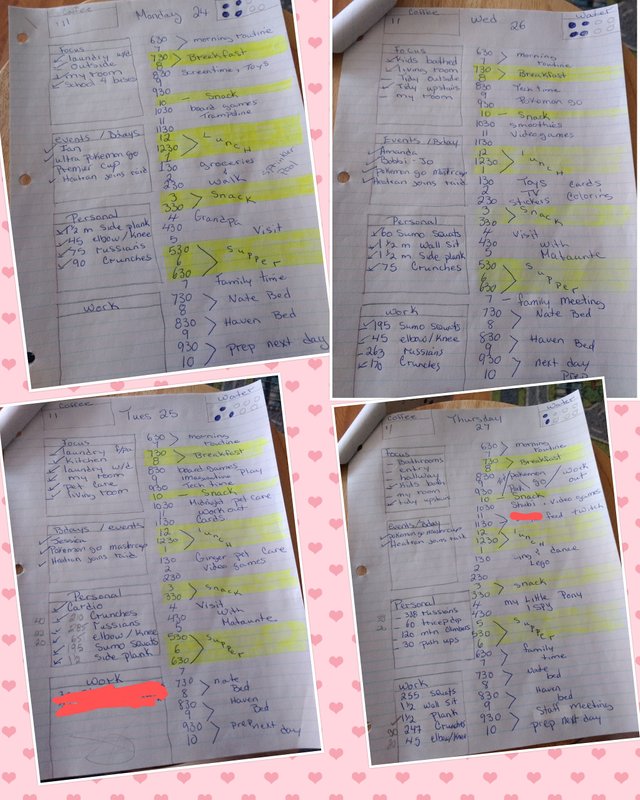 Coffee
Monday 24
Focus
laundry w/d
Outside
my room
School & buses
events / Bdays
Ian
ultra Pokemon go
Premier Cup
Heatran joins raid
Personal
1 1/2 m Side plank
45 elbow/knee
75 russians
90 Crunches
Work
630 > morning
7 routine
730 > Breakfast
8
830 Screentime, Toys
9
930
10 - Snack
1030 board games
11 Trampoline
1130
12 > Lunch
1230
1
130 groceries
2 walk
230
3 > Snack
330
4 Grandpa
430 Visit
5
530 > Supper
6
630
7 family time
730 > Nate Bed
8
830 > Haven Bed
9
930 > Prep next day
10
Coffee
Wed 26
Water
Focus
Kids bathed
living room
Tidy Outside
Tidy upstairs
my room
Events/Bday
Amanda
Bobbi-Jo
Pokemon go
Heatran joins raid
Personal
60 Sumo Squats
1 1/2 m Wall Sit
1 1/2 m Side plank
75 Crunches
Work
195 Sumo squats
45 elbow/knee
263 russians
170 Crunches
630 > morning
7 routine
730 > Breakfast
8
830 Tech time
9
930 Pokemon go
10 - Snack
1030 smoothies
11 Videogames
12 > Lunch
1230
1
130 Toys Cards
2 TV
230 Stickers Coloring
3 > Snack
330
4 Visit
430 with
5 Mataunte
530 > Supper
6
630
7 - family meeting
730 > Nate Bed
8
830 > Haven Bed
9
930 > next day
10 Prep
Coffee
Tues 25
Water
Focus
laundry f/pa
Kitchen
laundry w/d
my room
Pet Care
living room
Bdays / events
Jessica
Pokemon go
Heatran joins raid
Personal
Cardio
Crunches
Russians
elbow/Knee
195 Sumo Squats
1 1/2 Side plank
Work
630 > morning
7 routine
730 > Breakfast
8
830 board games
9 Imagination Play
930 Tech time
10 - Snack
1030 Midnight pet care
11 work out
1130 Cards
12 > Lunch
1230
1
130 Ginger pet Care
2 Video games
230
3 > Snack
330
4 Visit
430 With
5 Mataunte
530 > Supper
6
630
7
730 > nate
8 Bed
830 > Haven
9 Bed
930 > prep next day
10
Coffee
Thursday
27
Water
Focus
Bathrooms
entry
hallway
Kids room
my room
tidy upstairs
Events/Bday
Pokemon go
Heatran joins raid
Personal
338 russians
60 tricep dip
120 mtn climbers
30 push ups
Work
255 Squats
1 1/2 Wall Sit
1 1/2 Plank
247 Crunches
45 elbow/knee
630 > morning
7 routine
730 > Breakfast
8
830 Pokemon
9 go / work
930 out
10 Snack
1030 Video games
11 feed twitch
1130
12 > Lunch
1230
1
130 sing & dance
2 Lego
230
3 > snack
330
4 my Little Pony
430 I SPY
5 > Supper
530
6
630 > family
7 time
730 > nate
8 bed
830 > Haven
9 bed
930 > Staff meeting
10 prep next day